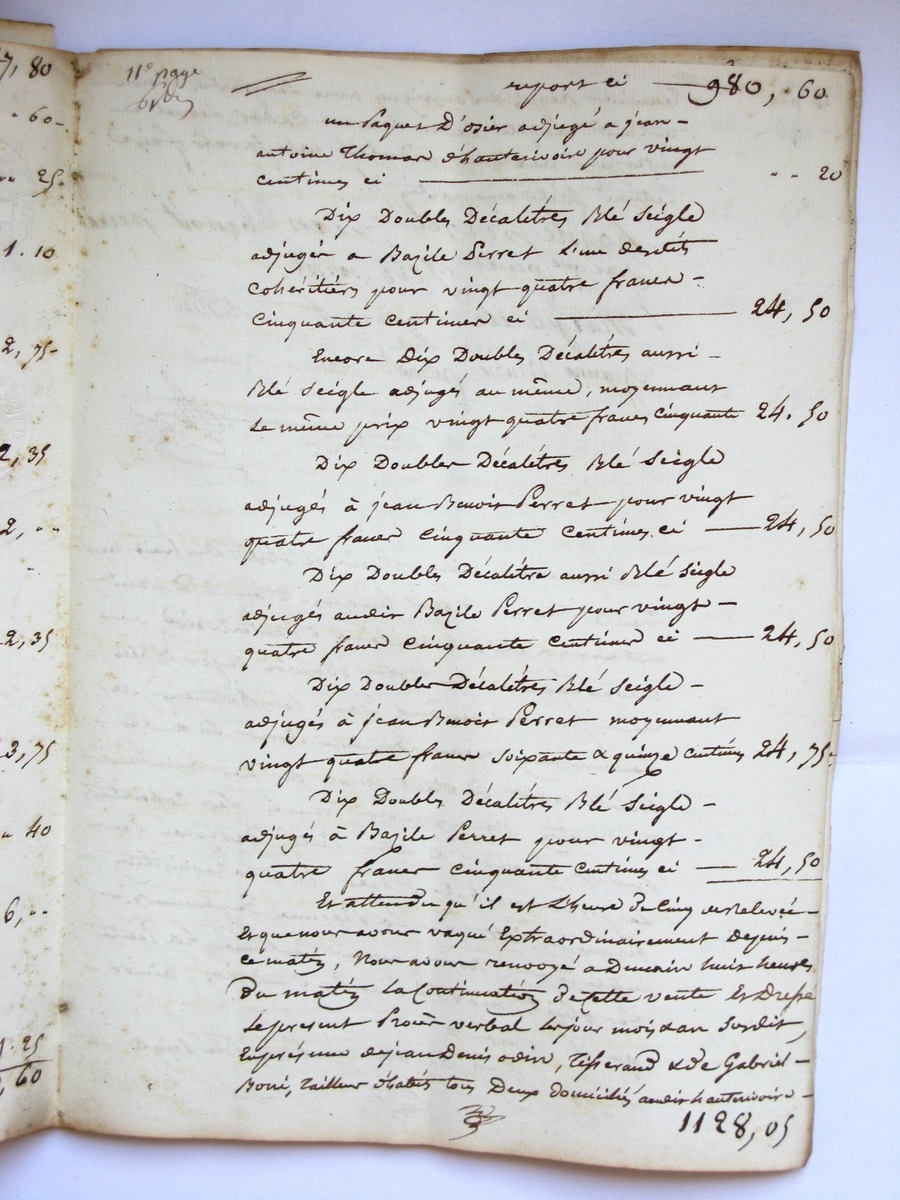 7, 80
- 60 -
25
1. 10
2, 75-
2, 35
2, --
2, 35
3, 75
40
6, --
1. 25
, 60
11e page
report ci 980, 60
un Paquet D'osier adjugé a jean-
antoine Thomas d'hauterivoire pour vingt
centimes ci -- 20
Dix Doubles Décalitres Blé Seigle
adjugés a Bazile Perret L'un desdits
Cohéritiers pour vingt quatre francs -
Cinquante Centimes ci 24, 50
Encore Dix Doubles Décalitres aussi -
Blé Seigle adjugés au même, moyennant
le même prix vingt quatre francs cinquante 24. 50
Dix Doubles Décalitres Blé Seigle
adjugés à jean Benoit Perret pour vingt
quatre francs cinquante centimes ci 24, 50
Dix Doubles Décalitre aussi Blé Seigle
adjugés audit Bazile Perret pour vingt -
quatre francs cinquante centimes ci 24, 50
Dix Doubles Décalitres Blé Seigle -
adjugés à jean Benoit Perret moyennant
vingt quatre francs soixante & quinze centimes 24, 75-
Dix Doubles Décalitres Blé Seigle -
adjugés à Bazile Perret pour vingt -
quatre francs cinquante centimes ci 24, 50
Et attendu qu'il est L'heure de Cinq de Relevée -
Et que nous avons vaqué Extraordinairement depuis -
ce matin, Nous avons renvoyé a Demain huit heures
du matin la Continuation de cette vente Et Dressé
le present Procès verbal les jour mois & an Susdit,
En présence de jean Denis odin, Tisserand & de Gabriel -
Boni, tailleur d'habits tous Deux domiciliés audit hauterivoire -
1128, 05